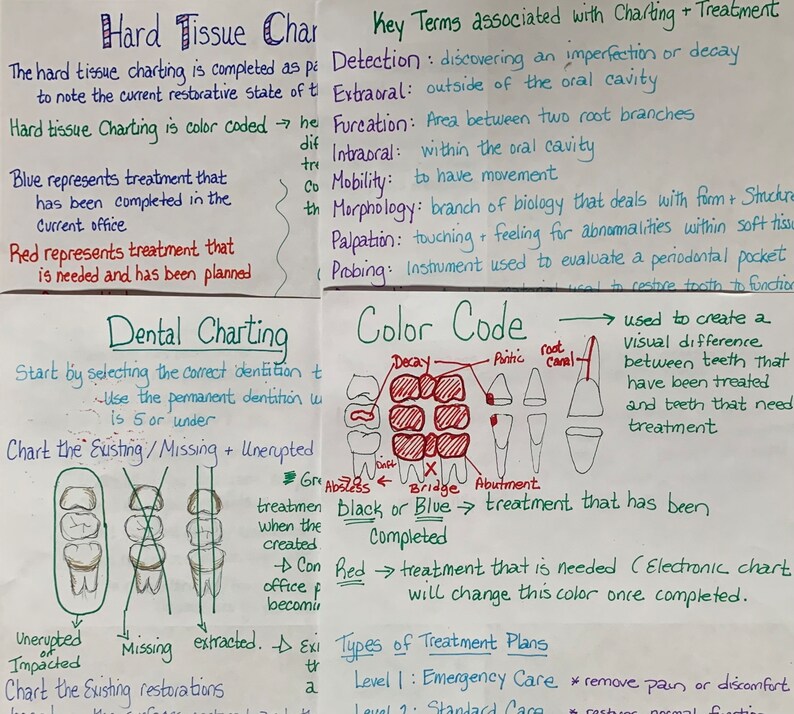 Hard Tissue Char
The hard tissue charting is completed as pa
to note the current restorative state of t
Hard tissue Charting is color coded → he
dif
tre
co
th
Blue represents treatment that
has been completed in the
current office
Red represents treatment that
is needed and has been planned
Key Terms associated with Charting + Treatment
Detection : discovering an imperfection or decay
Extraoral: outside of the oral cavity
Furcation: Area between two root branches
Intraoral: within the oral cavity
Mobility: to have movement
Morphology: branch of biology that deals with form + Structure
Palpation: touching + feeling for abnormalities within soft tissu
Probing: Instrument used to evaluate a periodontal pocket
material used to restore tooth to function
Dental Charting
Start by selecting the correct dentition t
Use the permanent dentition u
is 5 or under
Chart the Existing / Missing + Unerupted
Gre
treatmen
when the
created
→ Con
office p
becomin
Unerupted
or
Impacted
Missing
extracted.
→ Exi
th
a
Chart the Existing restorations
Color Code → used to create a
visual difference
between teeth that
have been treated
and teeth that need
treatment
Decay
Pontic
root
canal
Drift
Abscess
Bridge
Abutment
Black or Blue → treatment that has been
completed
Red → treatment that is needed (Electronic chart
will change this color once completed.
Types of Treatment Plans
Level 1: Emergency Care * remove pain or discomfort
Level 2: Standard Care * restore normal function